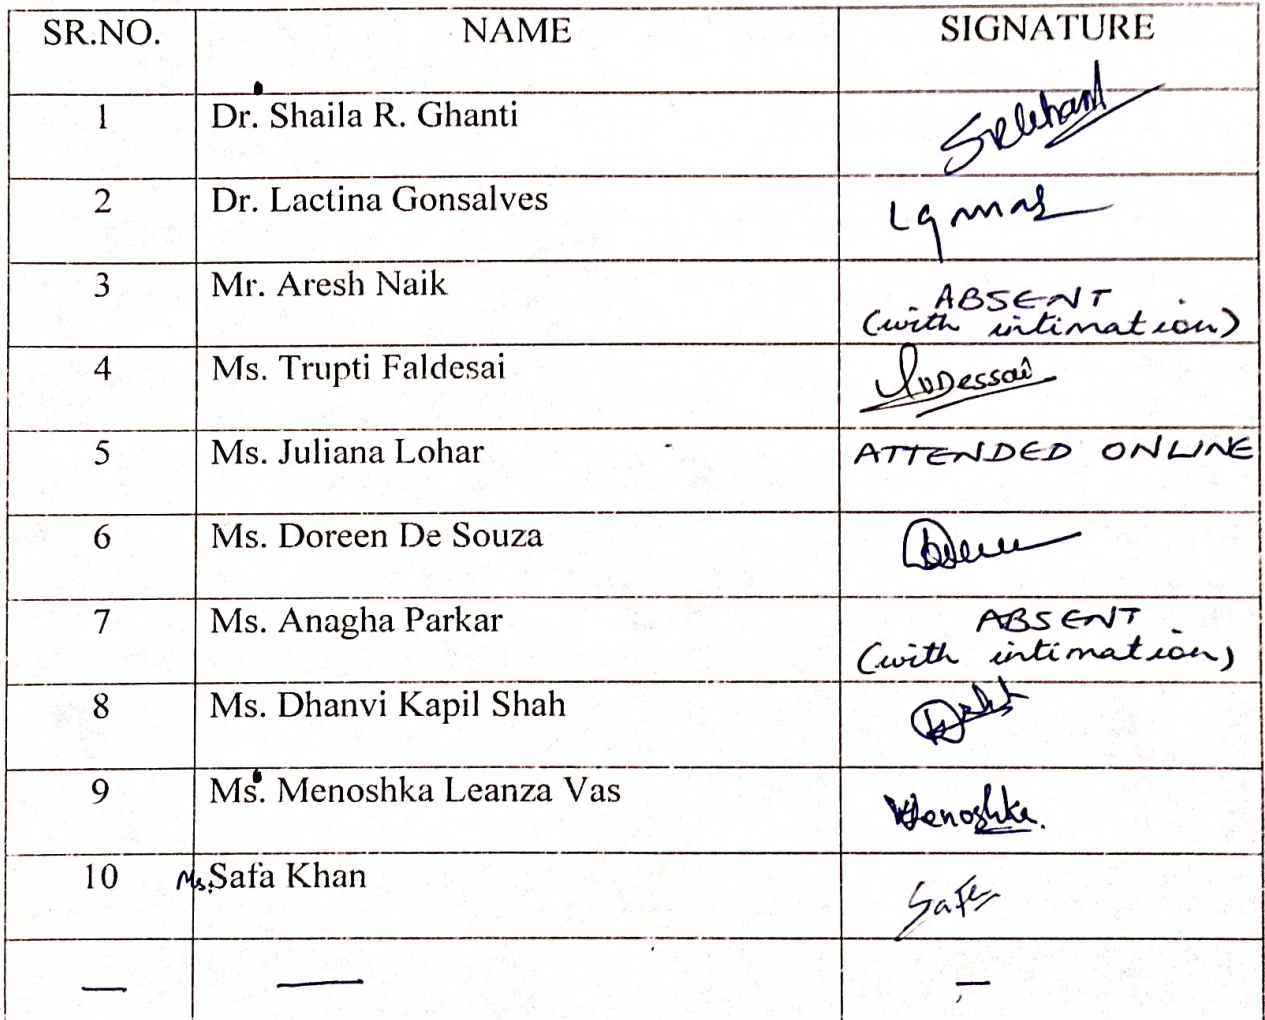 SR.NO. NAME SIGNATURE
1 Dr. Shaila R. Ghanti
2 Dr. Lactina Gonsalves
3 Mr. Aresh Naik ABSENT
(with intimation)
4 Ms. Trupti Faldesai
5 Ms. Juliana Lohar ATTENDED ONLINE
6 Ms. Doreen De Souza
7 Ms. Anagha Parkar ABSENT
(with intimation)
8 Ms. Dhanvi Kapil Shah
9 Ms. Menoshka Leanza Vas Menoshka.
10 Ms. Safa Khan Safa
— — —